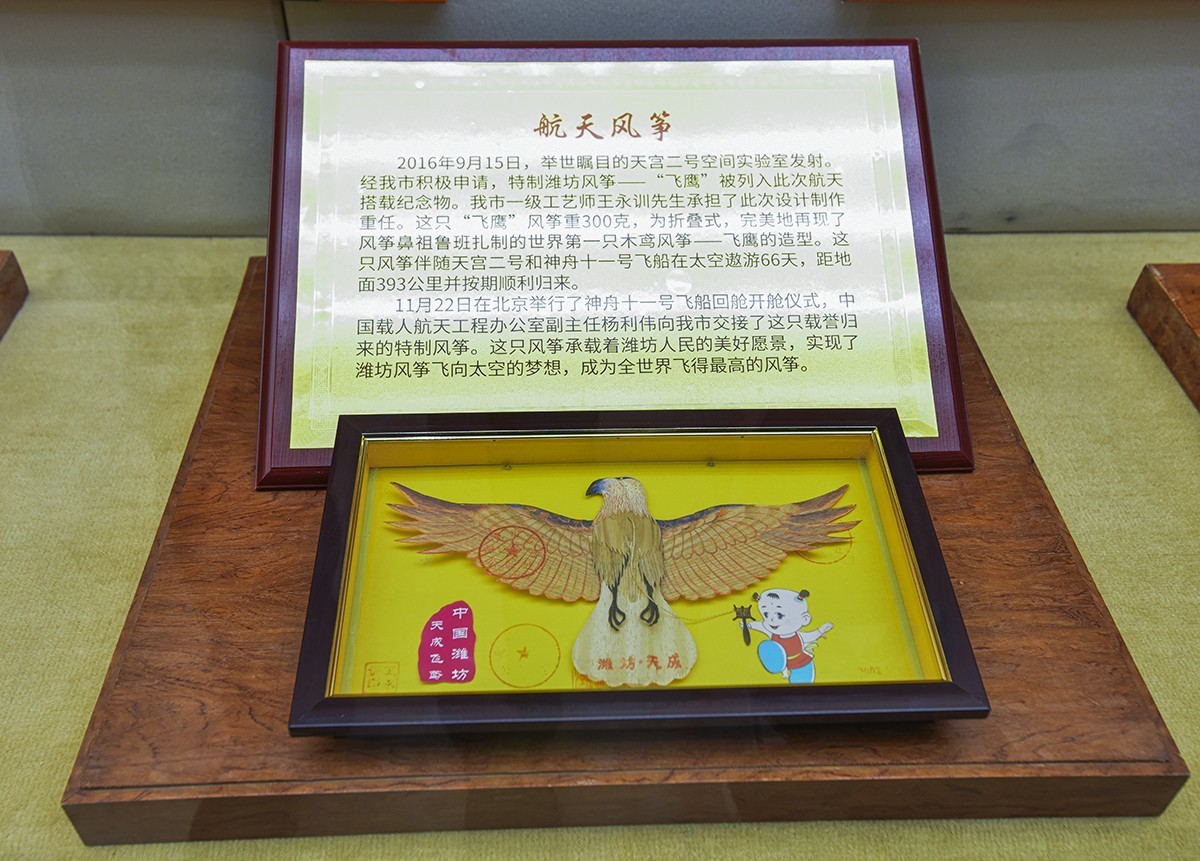 航天风筝
2016年9月15日，举世瞩目的天宫二号空间实验室发射。
经我市积极申请，特制潍坊风筝——“飞鹰”被列入此次航天
搭载纪念物。我市一级工艺师王永训先生承担了此次设计制作
重任。这只“飞鹰”风筝重300克，为折叠式，完美地再现了
风筝鼻祖鲁班扎制的世界第一只木鸢风筝——飞鹰的造型。这
只风筝伴随天宫二号和神舟十一号飞船在太空遨游66天，距地
面393公里并按期顺利归来。
11月22日在北京举行了神舟十一号飞船回舱开舱仪式，中
国载人航天工程办公室副主任杨利伟向我市交接了这只载誉归
来的特制风筝。这只风筝承载着潍坊人民的美好愿景，实现了
潍坊风筝飞向太空的梦想，成为全世界飞得最高的风筝。
中国潍坊
天成飞鸢
潍坊·天成